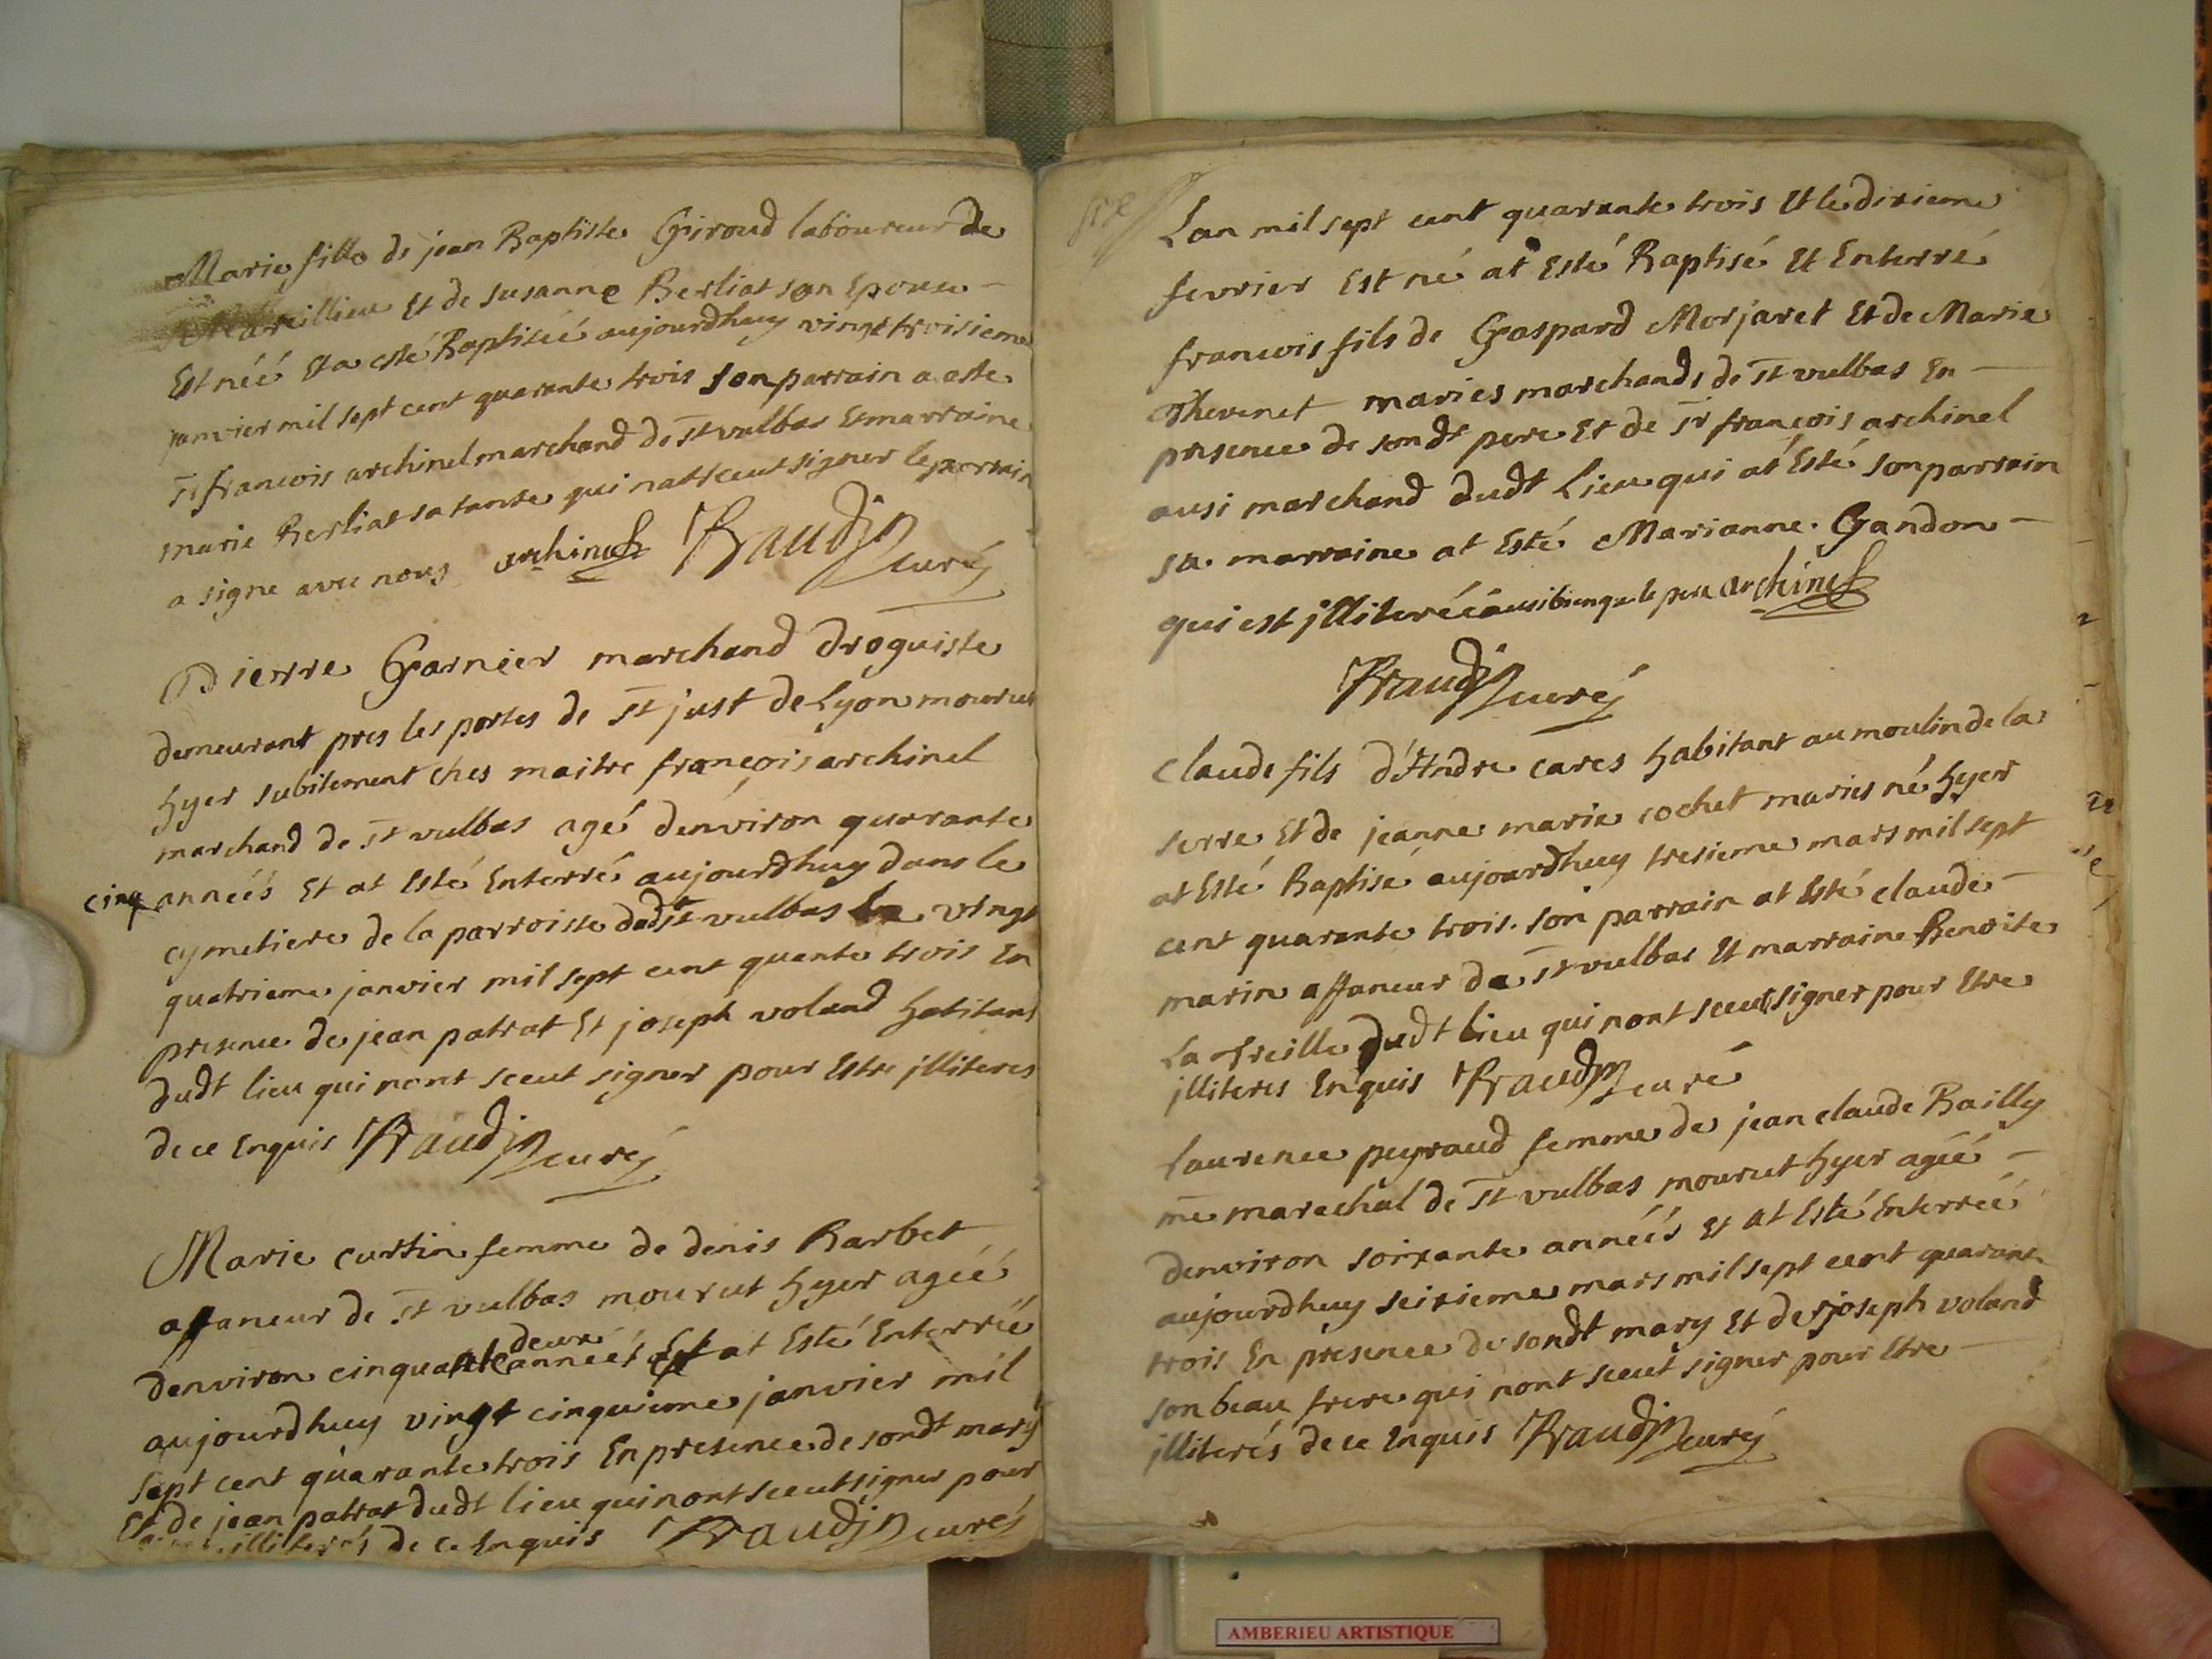 Marie fille de jean Baptiste Giroud laboureur de
Marcillieu Et de susanne Berliat son Epouse -
Est néé Et a esté Baptisée aujourdhuy vingt troisieme
janvier mil sept cent quarante trois son parrain a este
sr francois archinel marchand de st vulbas Et marraine
marie Berliat sa tante qui nat sceut signer le parrain
a signe avec nous archinel Baudin curé
Pierre Garnier marchand droguiste
demeurant pres les portes de st just de Lyon mourut
hyer subitement ches maitre françois archinel
marchand de st vulbas agé d'environ quarante
cinq annéés Et at Esté Enterré aujourdhuy dans le
cymetiere de la parroisse dudt st vulbas le vingt
quatrieme janvier mil sept cent quante trois En
presence de jean patrat Et joseph voland habitant
dudt lieu qui nont sceut signer pour Estre jlliteres
de ce Enquis Baudin curé
Marie curtin femme de denis Barbet
affaneur de st vulbas mourut hyer agéé
denviron cinquante deux annéés Et at Esté Enterréé
aujourdhuy vingt cinquieme janvier mil
sept cent quarante trois En presence de sondt mary
Et de jean patrat dudt lieu qui nont sceut signer pour
illiterés de ce Enquis Baudin curé
Lan mil sept cent quarante trois Et le dixieme
fevrier Est né at Esté Baptisé Et Enterré
francois fils de Gaspard Morjaret Et de Marie
Thevenet maries marchands de st vulbas En -
presence de sondt pere Et de sr françois archinel
ausi marchand dudt Lieu qui at Esté son parrain
sa marraine at Esté Marianne Gandon -
qui est jlliteréé ausi bien que le pere archinel
Baudin curé
Claude fils d'Andre cares habitant au moulin de la
serre Et de jeanne marie cochet maries né hyer
at Esté Baptisé aujourdhuy tresieme mars mil sept
cent quarante trois. son parrain at Esté claude -
marin affaneur de st vulbas Et marraine Benoite
La Treille dudt lieu qui nont sceut signer pour Etre
jlliteres Enquis Baudin curé
Laurence peyraud femme de jean claude Bailly
me marechal de st vulbas mourut hyer agéé -
denviron soixante annéés Et at Esté Enterréé
aujourdhuy seizieme mars mil sept cent quarante
trois En presence de sondt mary Et de joseph voland
son beau frere qui nont sceut signer pour Etre -
jlliterés de ce Enquis Baudin curé
AMBERIEU ARTISTIQUE